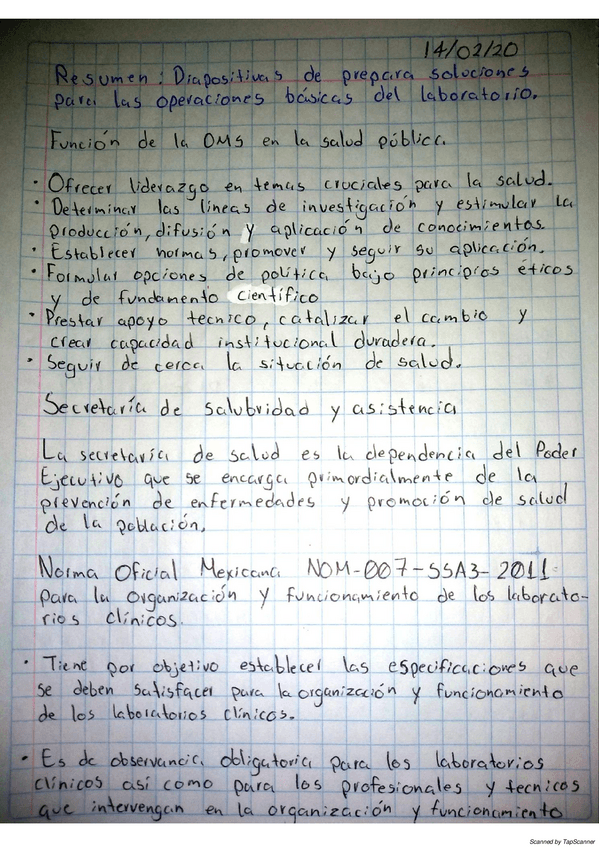 14/02/20
Resumen: Diapositivas de prepara soluciones
para las operaciones básicas del laboratorio.
Función de la OMS en la salud pública.
• Ofrecer liderazgo en temas cruciales para la salud.
• Determinar las líneas de investigación y estimular la
producción, difusión y aplicación de conocimientos.
• Establecer normas, promover y seguir su aplicación.
• Formular opciones de política bajo principios éticos
y de fundamento científico
• Prestar apoyo tecnico, catalizar el cambio y
crear capacidad institucional duradera.
• Seguir de cerca la situación de salud.
Secretaría de salubridad y asistencia
La secretaría de salud es la dependencia del Poder
Ejecutivo que se encarga primordialmente de la
prevención de enfermedades y promoción de salud
de la población.
Norma Oficial Mexicana NOM-007-SSA3-2011
para la organización y funcionamiento de los laborato-
rios clínicos.
• Tiene por objetivo establecer las especificaciones que
se deben satisfacer para la organización y funcionamiento
de los laboratorios clínicos.
• Es de observancia obligatoria para los laboratorios
clínicos así como para los profesionales y tecnicos
que intervengan en la organización y funcionamiento
Scanned by TapScanner